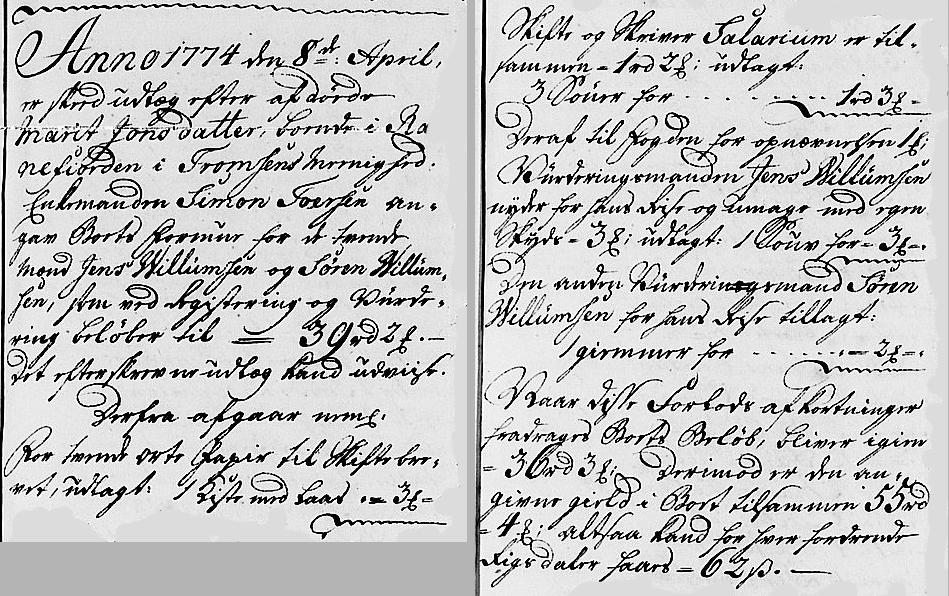 Anno 1774 den 8de: April,
er skeed udlæg efter afdöde
Marit Jons datter, boende i Ra
nefiorden i Tromsens Menighed.
Enkemanden Simon Toersen an-
gav Boets formue for de tvende
Mænd Jens Willumsen og Sören Willum,
sen, som ved Registering og Vurde-
ring belöber til = 39 rd 2 ƶ. -
Det efterskrevne udlæg kand udviise.
Derfra afgaar neml:
For tvende orte Papir til Skiftebre-
vet, udlagt: 1 Kiste med laas .= 3 ƶ =
Skifte og Skriver Salarium er til-
sammen = 1 rd 2 ƶ; udlagt:
3 Söuer for - - - - - - - 1 rd 3 ƶ =
Deraf til Fogden for opnævnelsen 1 ƶ;
Vurderingsmanden Jens Willumsen
nyder for hans Reise og umage med egen
Skyds = 3 ƶ; udlagt: 1 Souv for = 3 ƶ =.
Den anden Vurderingsmand Sören
Willumsen for hans Reise tillagt:
1 giemmer for - - - - - - .= 2 ƶ =.
Naar disse Forlods afkortninger
fradrages Boets Belöb, bliver igien
= 36 rd 3 ƶ; Derimod er den an-
givne gield i Boet tilsammen 55 rd
= 4 ƶ; altsaa kand for hver fordrende
Rigsdaler faaes = 62 ß. -